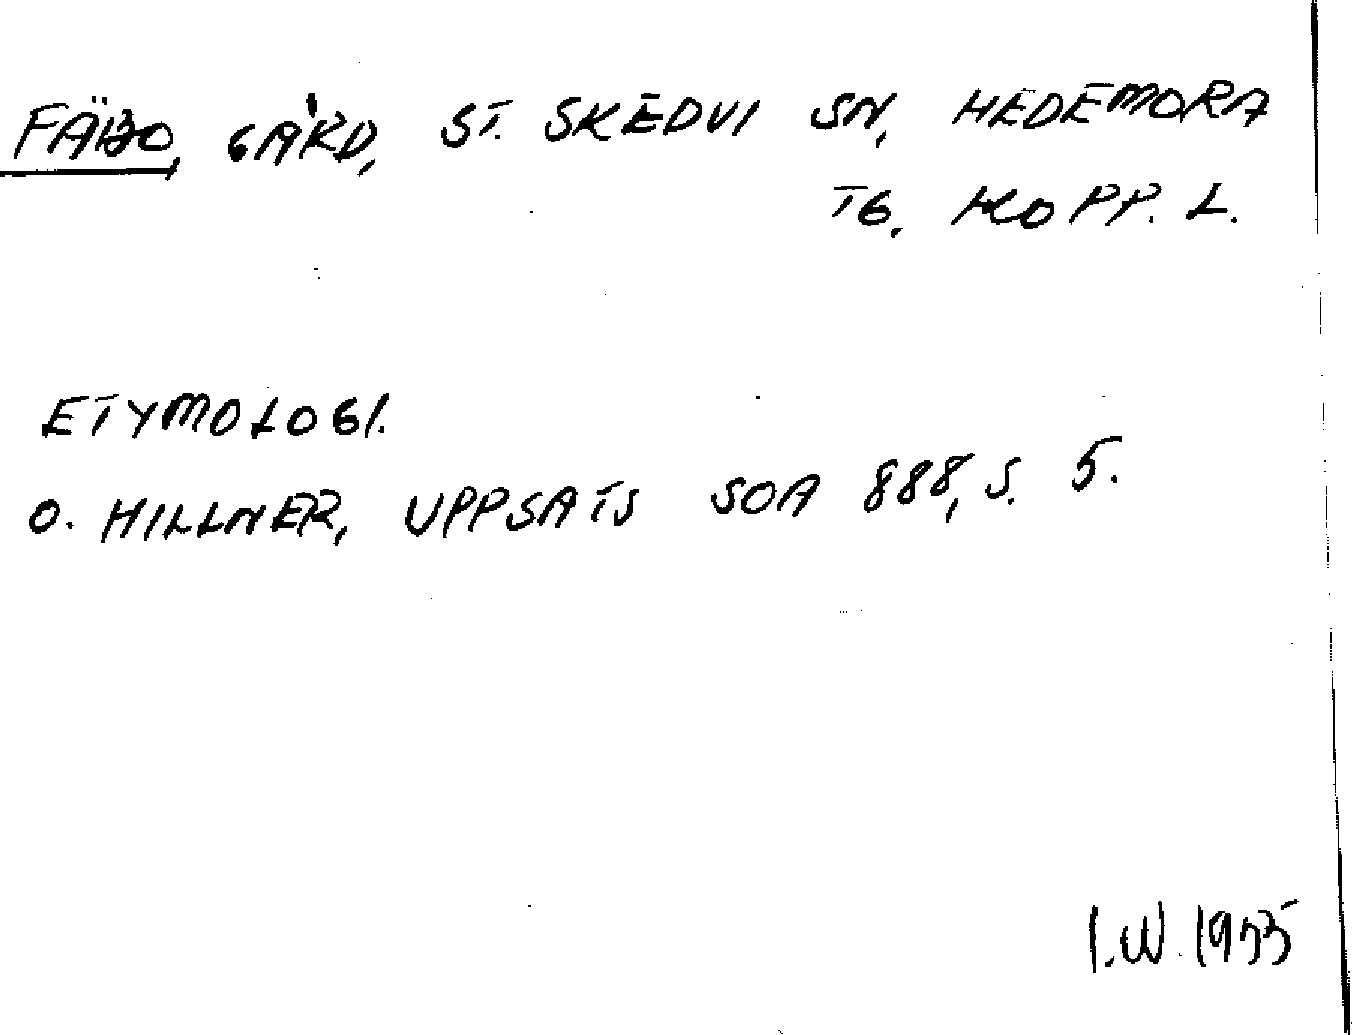 FÄBO, GÅRD, ST. SKEDVI SN, HEDEMORA
TG, KOPP. L.
ETYMOLOGI.
O. HILLNER, UPPSATS SOA 888, S. 5.
I.W. 1975